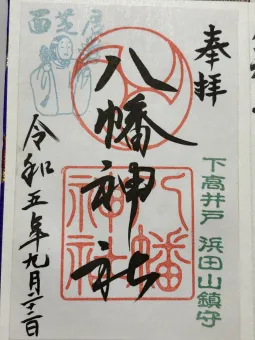 奉拝
下高井戸 浜田山鎮守
八幡神社
八幡神社
令和五年九月二三日